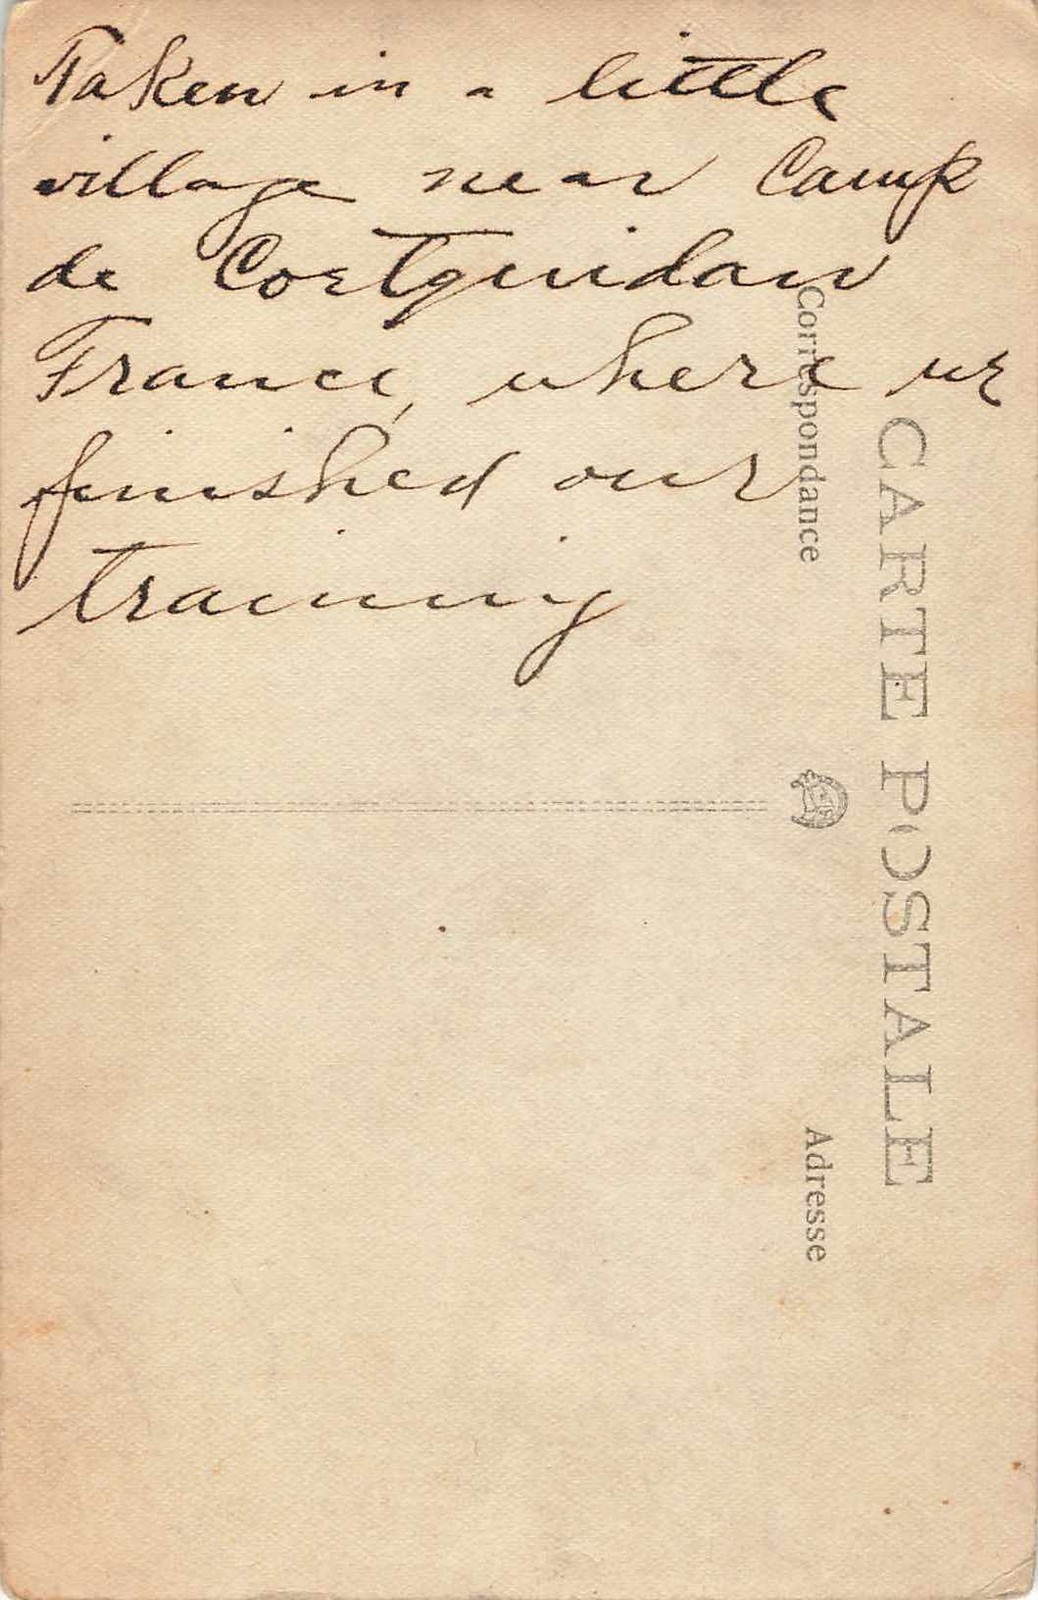 Taken in a little
village near Camp
de Coetquidan
France, where we
finished our
training
CARTE POSTALE
Correspondance
Adresse